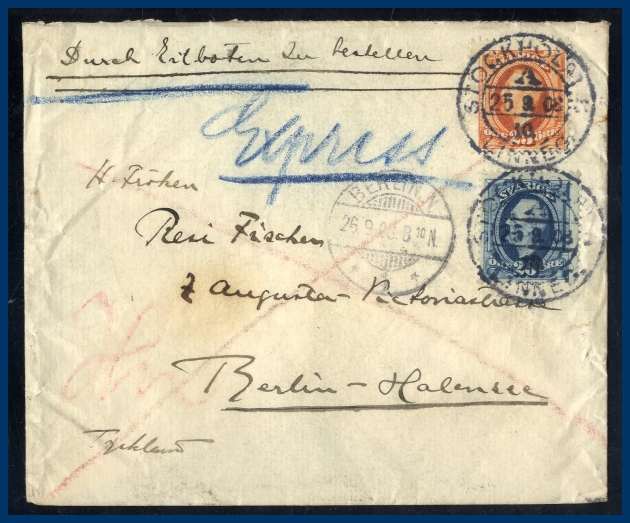 Durch Eilboten zu bestellen
Express
STOCKHOLM
A
25 9 08
10
SVERIGE
25 ÖRE
25 9 08
BERLIN
26.9.08.8 10 N.
H. Fröken
Resi Fischer
7 Augusta-Victoriastrasse
Berlin-Halensee
Tyskland